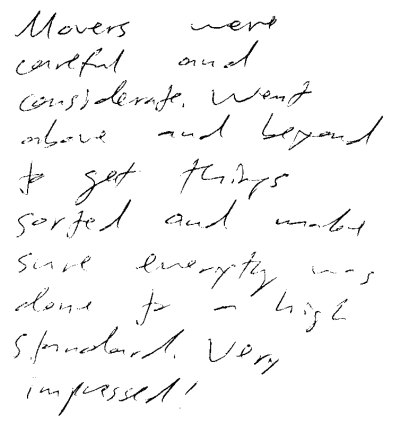 Movers were
careful and
considerate. Went
above and beyond
to get things
sorted and make
sure everythg was
done to a high
standard. Very
impressed!